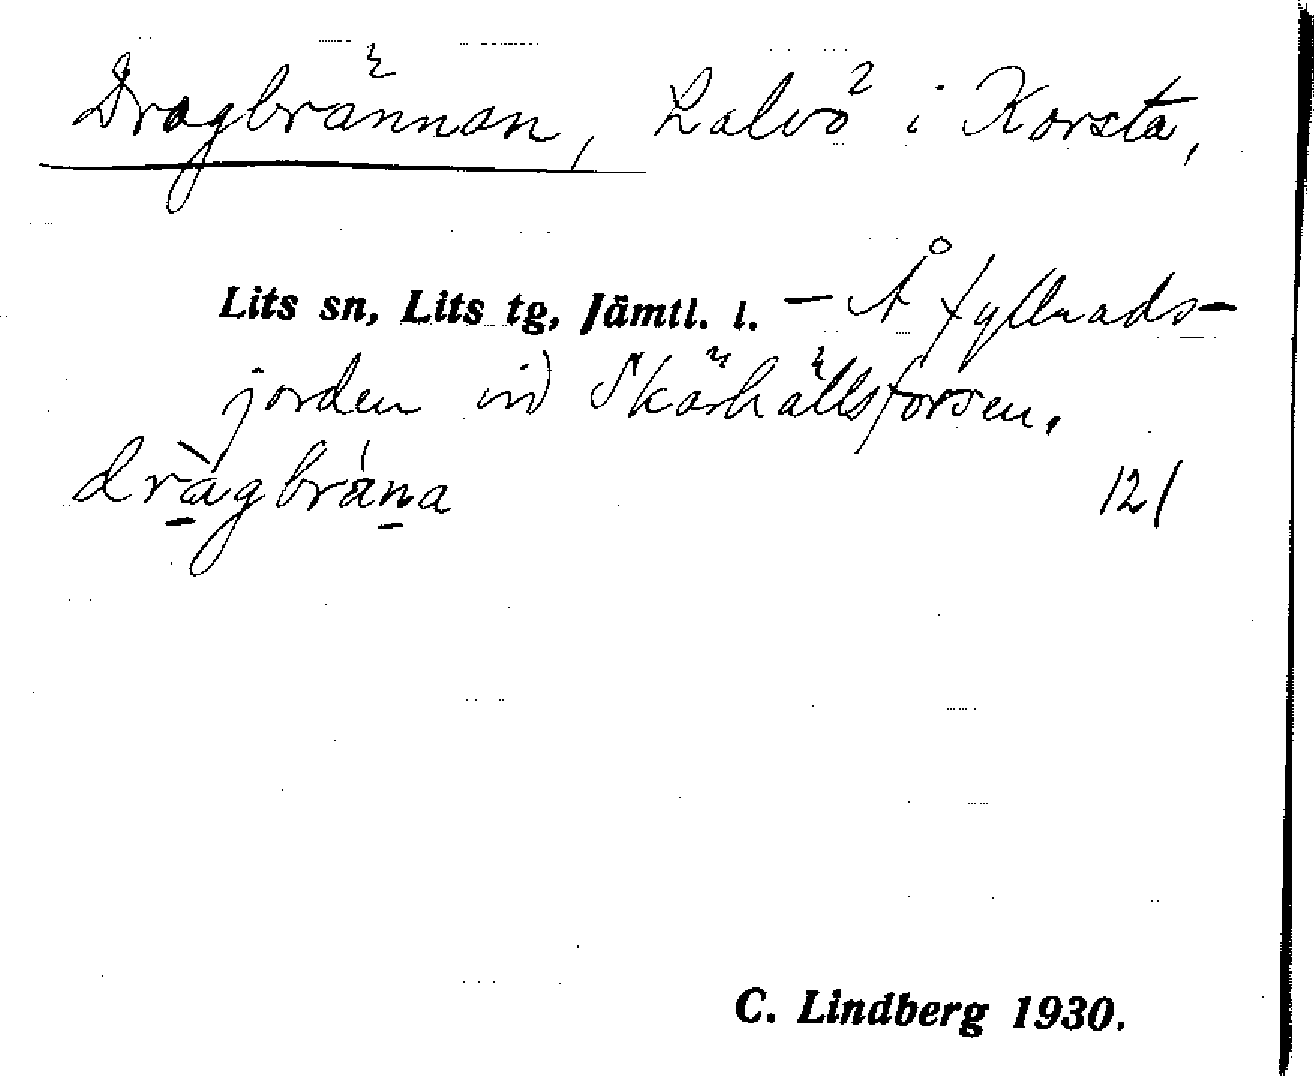 Dragbrännan, Lalvö i Korsta,
Lits sn, Lits tg, Jämtl. l. – Å fyllnads-
jorden vid Skärhällsforsen.
dràgbrána 121
C. Lindberg 1930.